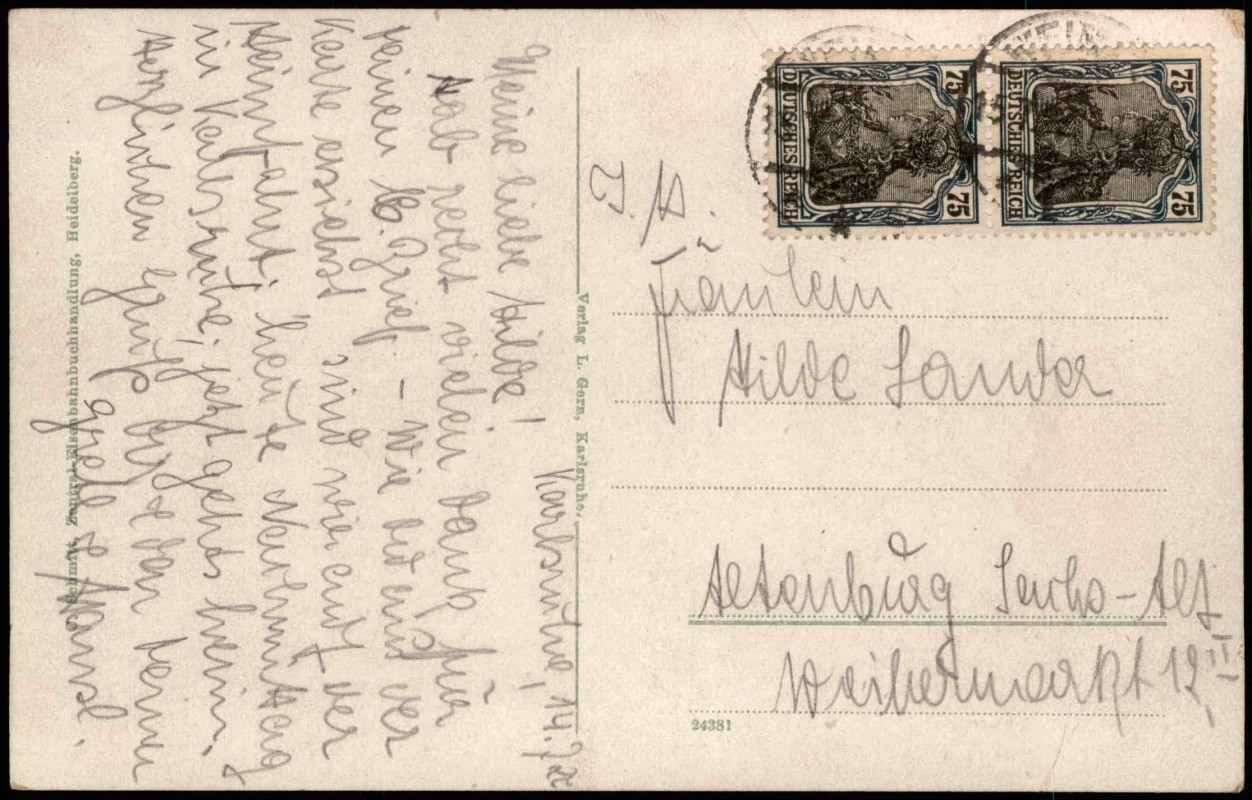 Karlsruhe, 14.7.22
Meine liebe Hilde!
Hab recht vielen Dank für
deinen l. Brief. – Wie du aus der
Karte ersiehst sind wir auf der
Heimfahrt, heute Nachmittag
in Karlsruhe, jetzt gehts heim.
Herzlichen Gruß Deiner
Gretel & Hansl.
Zentral-Eisenbahnbuchhandlung, Heidelberg.
Verlag L. Gern, Karlsruhe.
DEUTSCHES REICH
75
75
DEUTSCHES REICH
75
75
Fräulein
Hilde Sander
Altenburg Sachs-Alt
Weibermarkt 12 II
24381